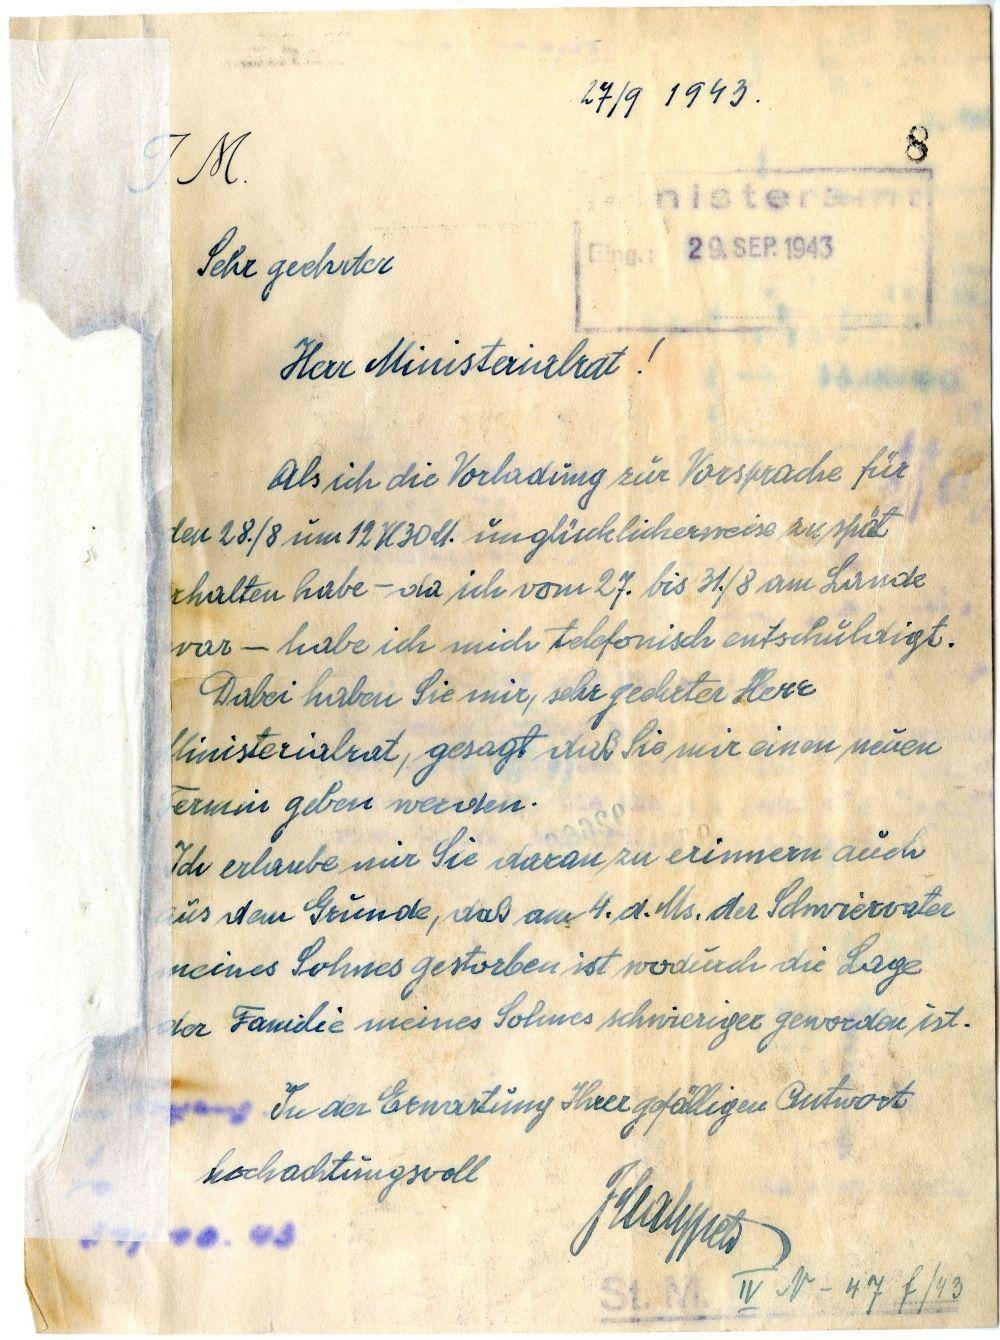 27/9 1943.
8
J. M.
Ministeramt
Eing.: 29. SEP. 1943
Sehr geehrter
Herr Ministerialrat!
Als ich die Vorladung zur Vorsprache für
den 28./8 um 12 H 30 M. unglücklicherweise zu spät
erhalten habe – da ich vom 27. bis 31./8 am Lande
war – habe ich mich telefonisch entschuldigt.
Dabei haben Sie mir, sehr geehrter Herr
Ministerialrat, gesagt daß Sie mir einen neuen
Termin geben werden.
Ich erlaube mir Sie daran zu erinnern auch
aus dem Grunde, daß am 4. d. Ms. der Schwiervater
meines Sohnes gestorben ist wodurch die Lage
der Familie meines Sohnes schwieriger geworden ist.
In der Erwartung Ihrer gefälligen Antwort
hochachtungsvoll
St. M. IV N - 47 f/43